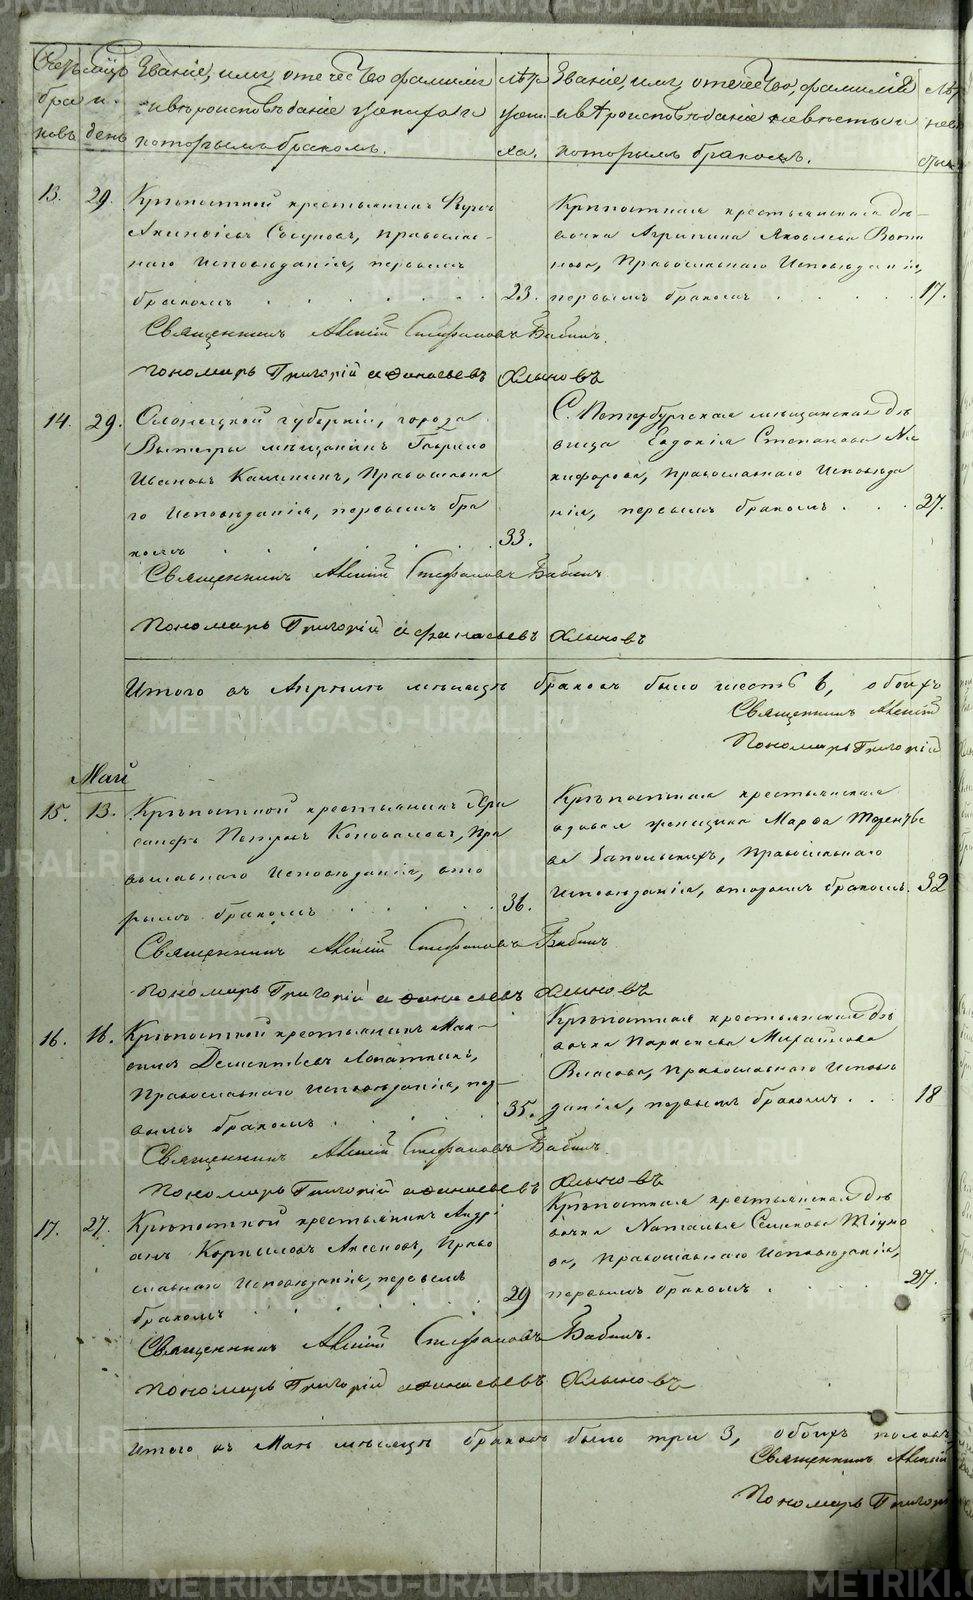 Звание, имя, отечество, фамилия
и вѣроисповѣдание жениха и
которымъ бракомъ.
Звание, имя, отечество, фамилия
и вѣроисповѣдание невѣсты и
которымъ бракомъ.
день
13. 29. Крѣпостной крестьянинъ
православ-
наго Исповѣданія, первымъ
бракомъ 23.
Крѣпостная крестьянская дѣ-
вочка Агрипина Яковлева
Православнаго Исповѣданія,
первымъ бракомъ 17.
Священникъ Алексій Стефановъ Бабинъ.
Пономарь Григорій Афанасьевъ Хлыновъ
14. 29. Олонецкой губерніи, города
Вытегры мѣщанинъ Гаврило
Ивановъ Калининъ, Православна
го Исповѣданія, первымъ бра
комъ 33.
С. Петербургская мѣщанская дѣ
вица Евдокія Степанова Ни
кифорова, православнаго Исповѣда
нія, первымъ бракомъ 27.
Священникъ Алексій Стефановъ Бабинъ
Пономарь Григорій Афанасьевъ Хлыновъ
Итого въ Апрѣлѣ мѣсяцѣ браковъ было шесть 6, обоихъ
Священникъ Алексій
Пономарь Григорій
Май
15. 13. Крѣпостной крестьянинъ Хри
санфъ Петровъ Коноваловъ, Пра
вославнаго Исповѣданія, вто
рымъ бракомъ 36.
Крѣпостная крестьянская
вдовая женщина Марѳа
Запольскихъ, Православнаго
Исповѣданія, вторымъ бракомъ. 32
Священникъ Алексій Стефановъ Бабинъ
Пономарь Григорій Афанасьевъ Хлыновъ
16. 16. Крѣпостной крестьянинъ Мак-
симъ Дементьевъ Лопаткинъ,
Православнаго Исповѣданія, пер-
вымъ бракомъ 35.
Крѣпостная крестьянская дѣ
вочка Параскева Михайлова
Власова, Православнаго Исповѣ
данія, первымъ бракомъ 18
Священникъ Алексій Стефановъ Бабинъ.
Пономарь Григорій Афанасьевъ Хлыновъ
17. 27. Крѣпостной крестьянинъ Андрі
анъ Корниловъ Аксеновъ, Право
славнаго Исповѣданія, первымъ
бракомъ 29
Крѣпостная крестьянская дѣ
вочка Наталья Семенова Тіуно
ва, Православнаго Исповѣданія,
первымъ бракомъ 27.
Священникъ Алексій Стефановъ Бабинъ.
Пономарь Григорій Афанасьевъ Хлыновъ
Итого въ Маѣ мѣсяцѣ браковъ было три 3, обоихъ половъ
Священникъ Алексій
Пономарь Григорій
METRIKI.GASO-URAL.RU